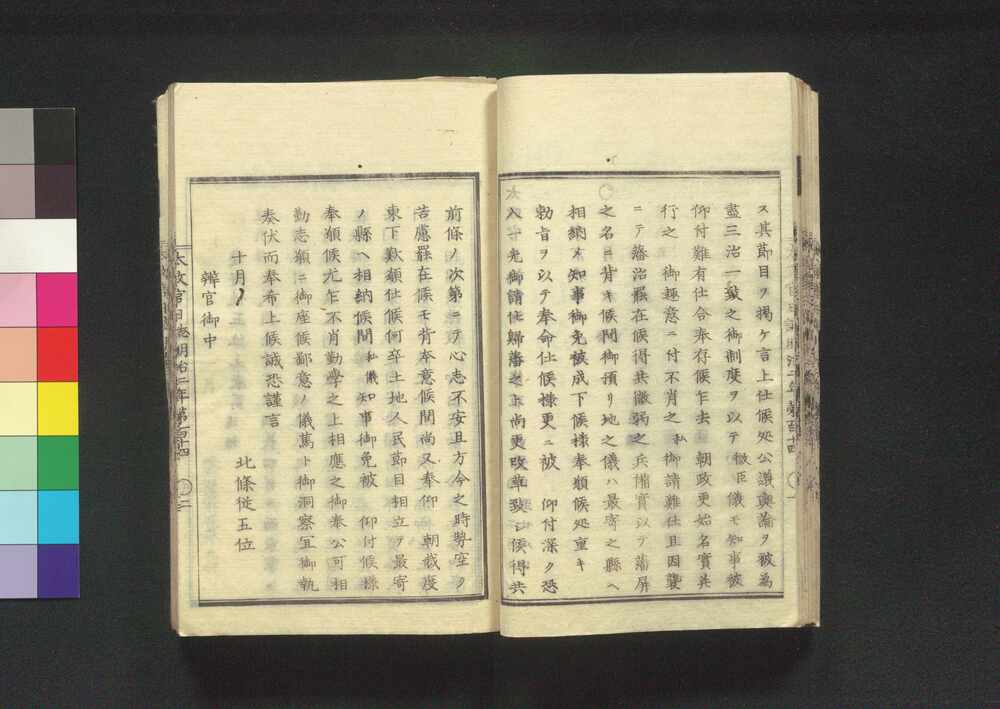 ス其節目ヲ掲ケ言上仕候処公議輿論ヲ被為
盡三治一致之御制度ヲ以テ微臣儀モ知事被
仰付難有仕合奉存候乍去 朝政更始名實共
行之 御趣意ニ付不肖之私御請難仕且因襲
ニテ藩治罷在候得共微弱之兵備實以テ藩屏
之名ニ背キ候間御預リ地之儀ハ最寄之縣ヘ
相納メ知事御免被成下候様奉願候処重キ
勅旨ヲ以テ奉命仕候様更ニ被 仰付深ク恐
入 先御請仕歸藩之上尚更改革致シ候得共
太政官日誌明治二年第百十四 二
前條ノ次第ニテ心志不安且方今之時勢空ク
苦慮罷在候モ背本意候間尚又奉仰 朝裁度
東下歎願仕候何卒土地人民節目相立テ最寄
ノ縣ヘ相納候間私儀知事御免被 仰付候様
奉願候尤乍不肖勤學之上相應之御奉公可相
勤志願ニ御座候鄙意ノ儀萬ト御洞察宜御執
奏伏而奉希上候誠恐謹言
十月 北條従五位
辨官御中